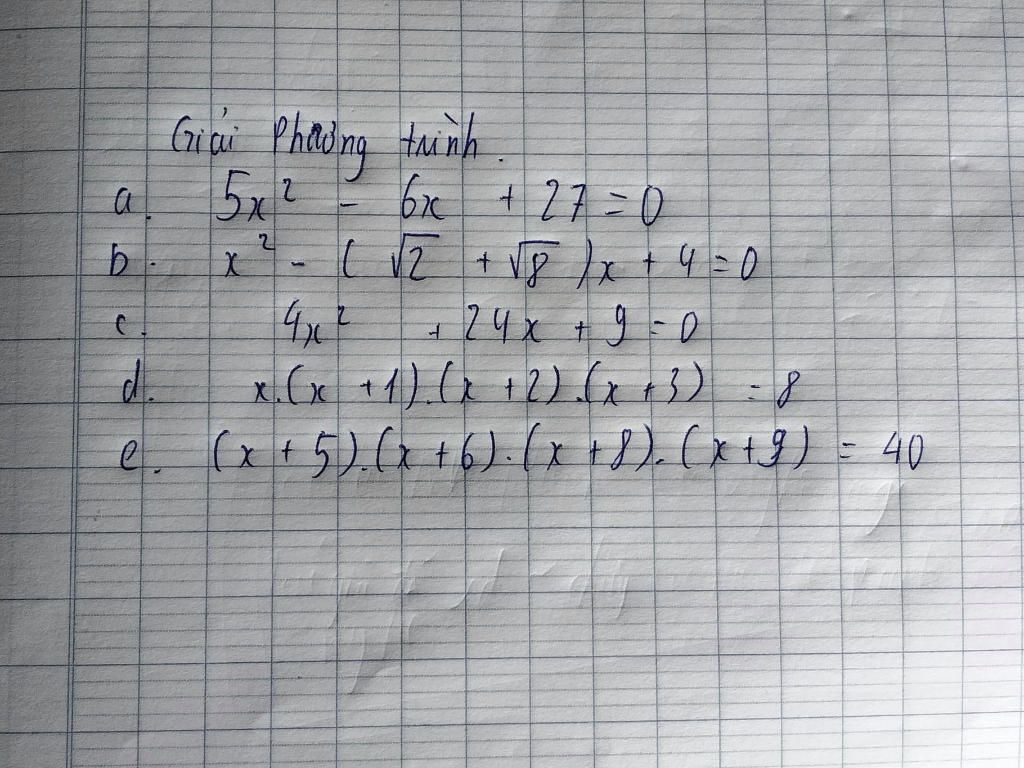 Giải Phương trình.
a. 5x² - 6x + 27 = 0
b. x² - (√2 + √8)x + 4 = 0
c. 4x² + 24x + 9 = 0
d. x.(x + 1).(x + 2).(x + 3) = 8
e. (x + 5).(x + 6).(x + 8).(x + 9) = 40